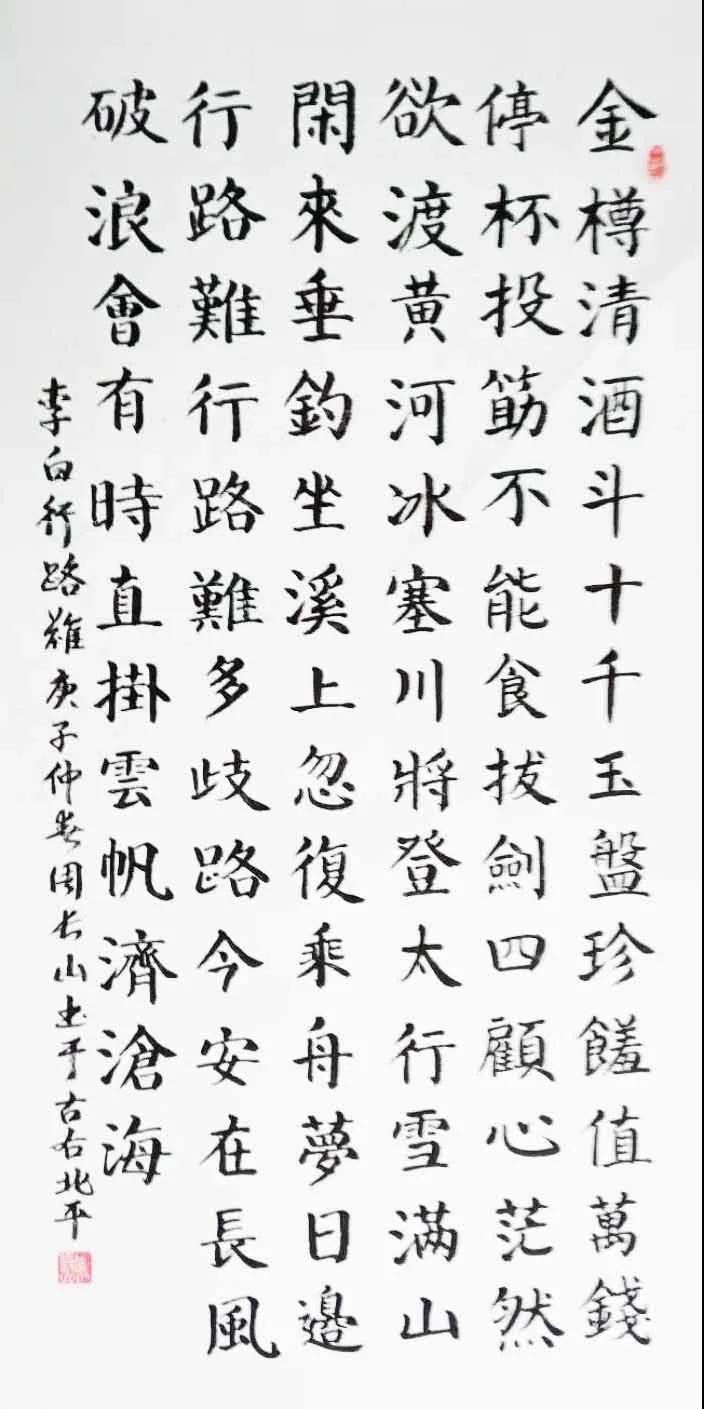 金樽清酒斗十千玉盤珍饈值萬錢
停杯投筯不能食拔劍四顧心茫然
欲渡黃河冰塞川將登太行雪滿山
閑來垂釣坐溪上忽復乘舟夢日邊
行路難行路難多歧路今安在長風
破浪會有時直掛雲帆濟滄海
李白行路難庚子仲春周长山书于古右北平